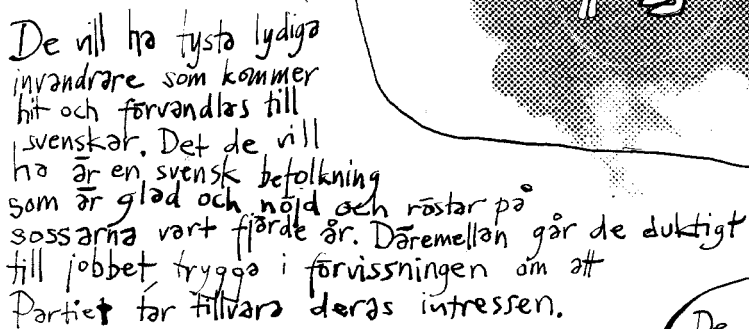 De vill ha tysta lydiga
invandrare som kommer
hit och förvandlas till
svenskar. Det de vill
ha är en svensk befolkning
som är glad och nöjd och röstar på
sossarna vart fjärde år. Däremellan går de duktigt
till jobbet trygga i förvissningen om att
Partiet tar tillvara deras intressen.
De